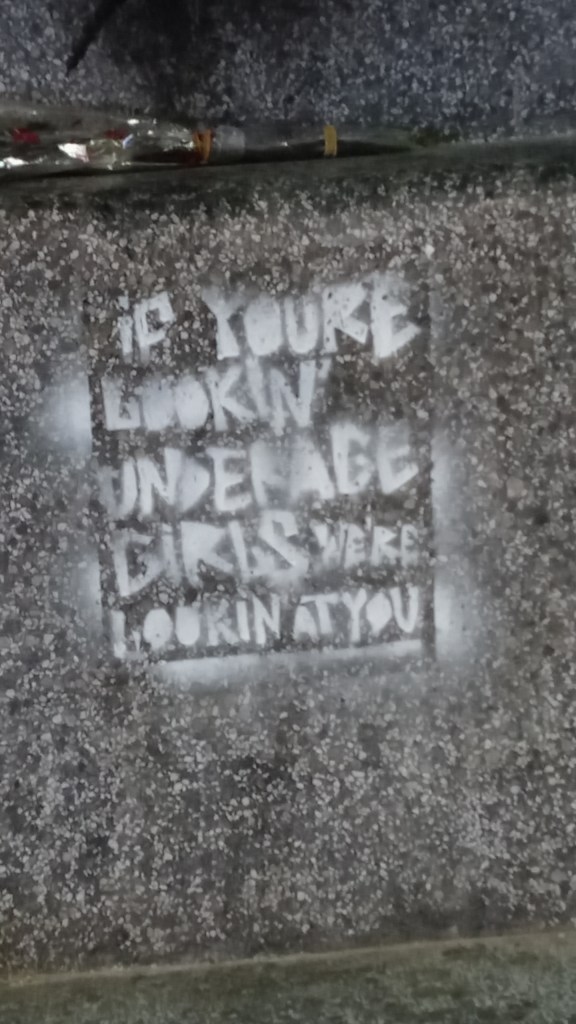 iF YOU'RE
LOOKIN'
UNDERAGE
GIRLS WE'RE
LOOKIN AT YOU